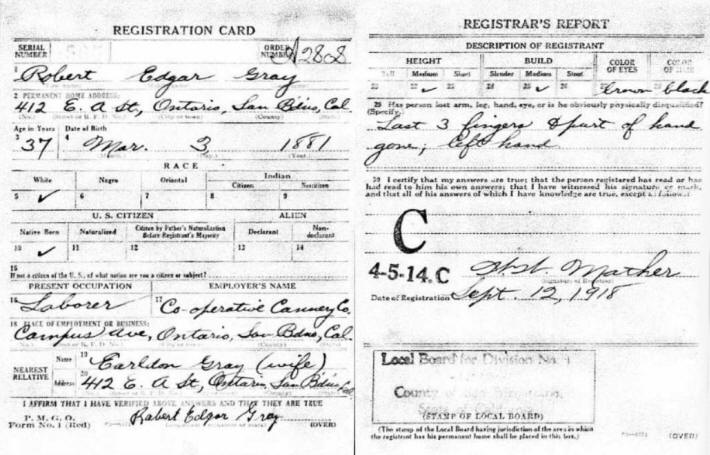 REGISTRATION CARD
SERIAL NUMBER
ORDER NUMBER 2808
1 Robert Edgar Gray
2 PERMANENT HOME ADDRESS:
412 E. A St, Ontario, San Bdno, Cal.
Age in Years Date of Birth
3 37 4 Mar. 3 1881
RACE
White Negro Oriental Indian
Citizen
5 ✓ 6 7 8 9
U. S. CITIZEN ALIEN
Native Born Naturalized Citizen by Father's Naturalization Before Registrant's Majority Declarant Non-declarant
10 ✓ 11 12 13 14
15
If not a citizen of the U. S., of what nation are you a citizen or subject?
PRESENT OCCUPATION EMPLOYER'S NAME
16 Laborer 17 Co-operative Cannery Co.
18 PLACE OF EMPLOYMENT OR BUSINESS:
Campus Ave, Ontario, San Bdno, Cal.
NEAREST RELATIVE
Name 19 Earldon Gray (wife)
Address 20 412 E. A St, Ontario, San Bdno Cal
I AFFIRM THAT I HAVE VERIFIED ABOVE ANSWERS AND THAT THEY ARE TRUE
P. M. G. O.
Form No. 1 (Red) Robert Edgar Gray (OVER)
REGISTRAR'S REPORT
DESCRIPTION OF REGISTRANT
HEIGHT BUILD COLOR OF EYES COLOR OF
Tall Medium Short Slender Medium Stout
22 ✓ 23 24 25 ✓ 26 brown black
29 Has person lost arm, leg, hand, eye, or is he obviously physically disqualified?
(Specify.)
Last 3 fingers & part of hand
gone; left hand
30 I certify that my answers are true; that the person registered has read or has
had read to him his own answers; that I have witnessed his signature or mark,
and that all of his answers of which I have knowledge are true, except as follows:
C
4-5-14. C Mather
Date of Registration Sept. 12, 1918
Local Board for Division No. 1
County of San Bernardino,
(STAMP OF LOCAL BOARD)
(The stamp of the Local Board having jurisdiction of the area in which
the registrant has his permanent home shall be placed in this box.)
(OVER)